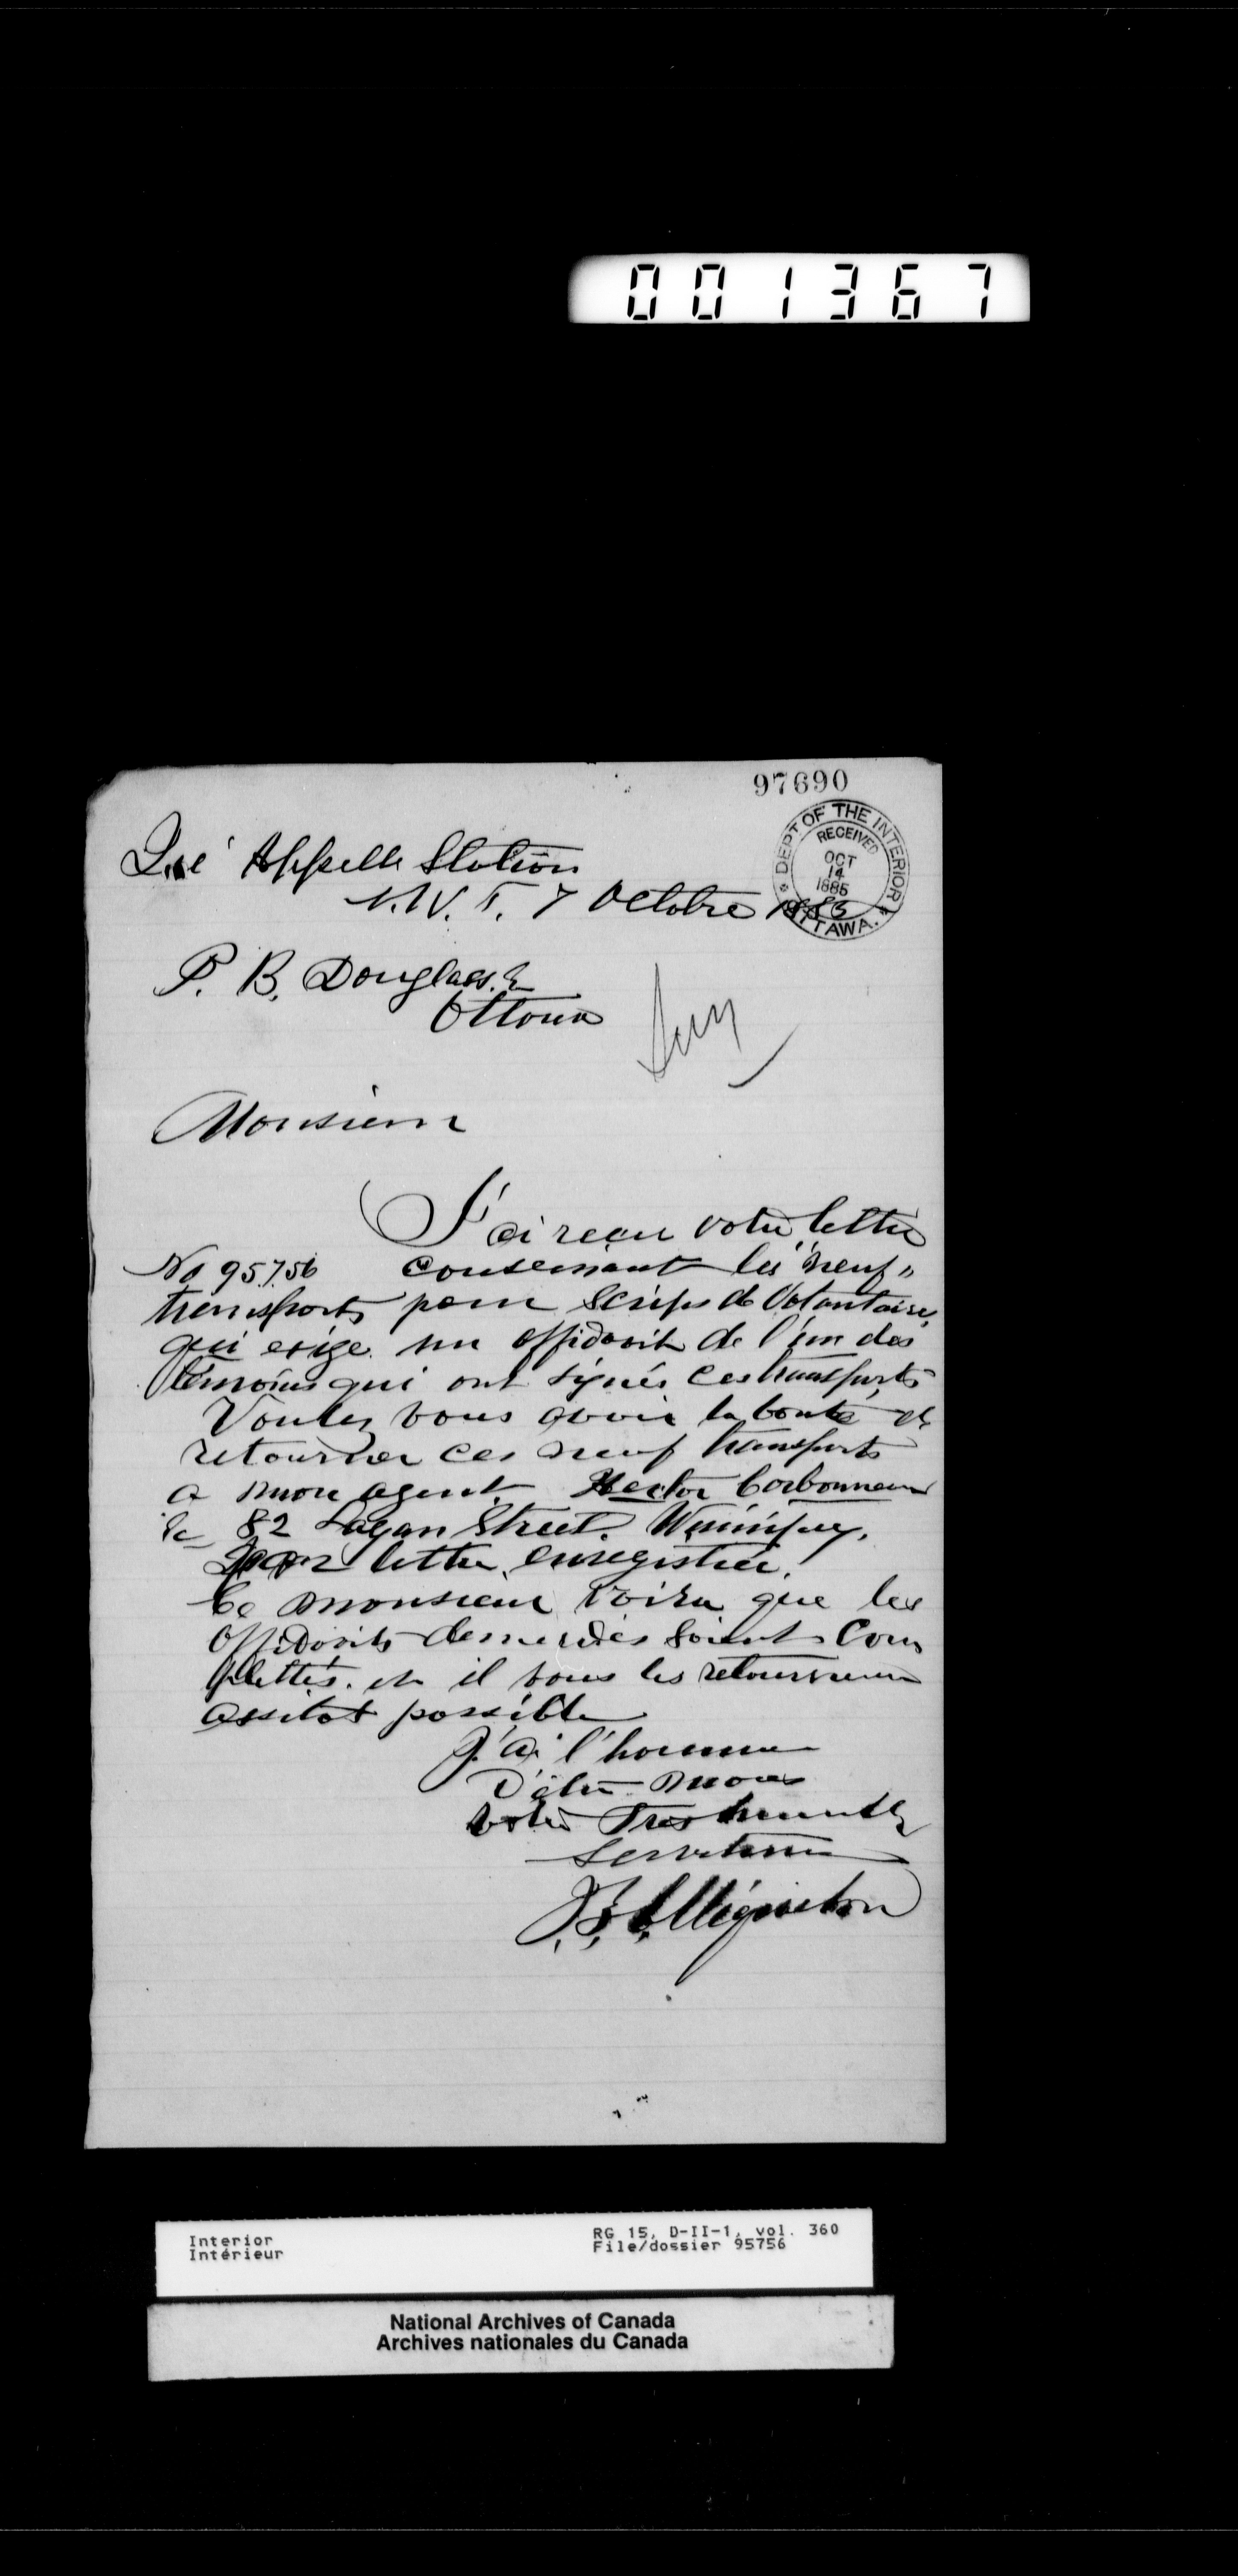 001367
97690
DEPT OF THE INTERIOR
RECEIVED
OCT
14
1885
OTTAWA.
Que' Appelle Station
N.W.T. 7 Octobre 1885
P. B. Douglass.
Ottawa
Monsieur
J'ai recu votre lettre
No 95756 consernant les "neuf"
transports pour scrips de Volontaires,
qui exige un affidavit de l'un des
témoins qui ont signés ces transports
Voulez vous avoir la bonté de
retourner ces neuf transports
a mon agent Hector Carbonneau
82 Logan Street. Winnipeg.
par lettre enregistree.
Ce monsieur voira que les
affidavits demandés soient Com
plettés. et il vous les retournera
assitot possible
J'ai l'honneur
D'être Mons
Votre Tres humble
Serviteur
J. B. Migneron
Interior
Intérieur
RG 15, D-II-1, vol. 360
File/dossier 95756
National Archives of Canada
Archives nationales du Canada